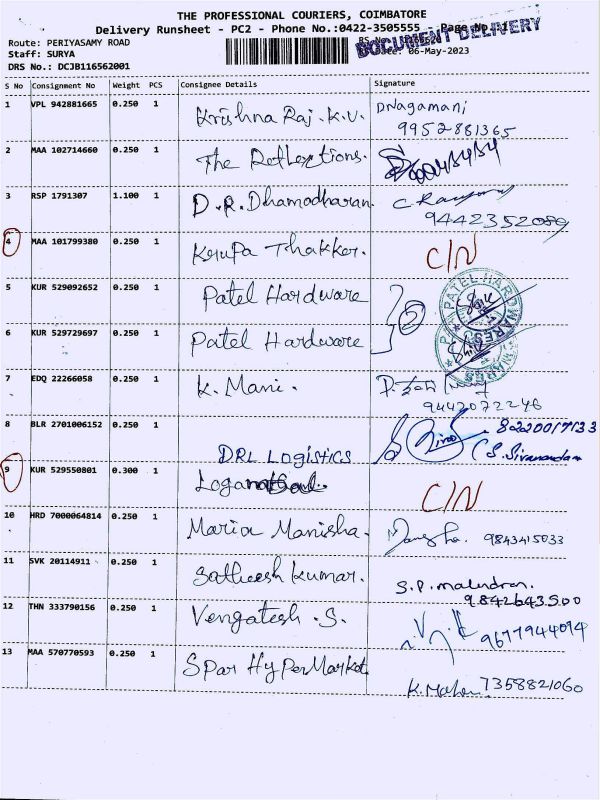 THE PROFESSIONAL COURIERS, COIMBATORE
Delivery Runsheet - PC2 - Phone No.:0422-3505555 - Page No.
DOCUMENT DELIVERY
Route: PERIYASAMY ROAD
Staff: SURYA 06-May-2023
DRS No.: DCJB116562001
S No Consignment No Weight PCS Consignee Details Signature
1 VPL 942881665 0.250 1 Krishna Raj. K.V. D Nagamani
9952881365
2 MAA 102714660 0.250 1 The Reflextions.
3 RSP 1791307 1.100 1 D.R. Dhamodharan.
9442352089
4 MAA 101799380 0.250 1 Krupa Thakker. C/N
5 KUR 529092652 0.250 1 Patel Hardware 2
6 KUR 529729697 0.250 1 Patel Hardware
PATEL HARDWARES
7 EDQ 22266058 0.250 1 K. Mani.
9442072246
8 BLR 2701006152 0.250 1 DRL Logistics 8220017133
(S. Sivanandam
9 KUR 529550801 0.300 1 C/N
10 HRD 7000064814 0.250 1 Maria Manisha. 9843415033
11 SVK 20114911 0.250 1 Satheesh Kumar. S.P. Mahendran.
9842643500
12 THN 333790156 0.250 1 Vengatesh. S. 9677944094
13 MAA 570770593 0.250 1 Spar Hyper Market. K. Mohan 7358821060